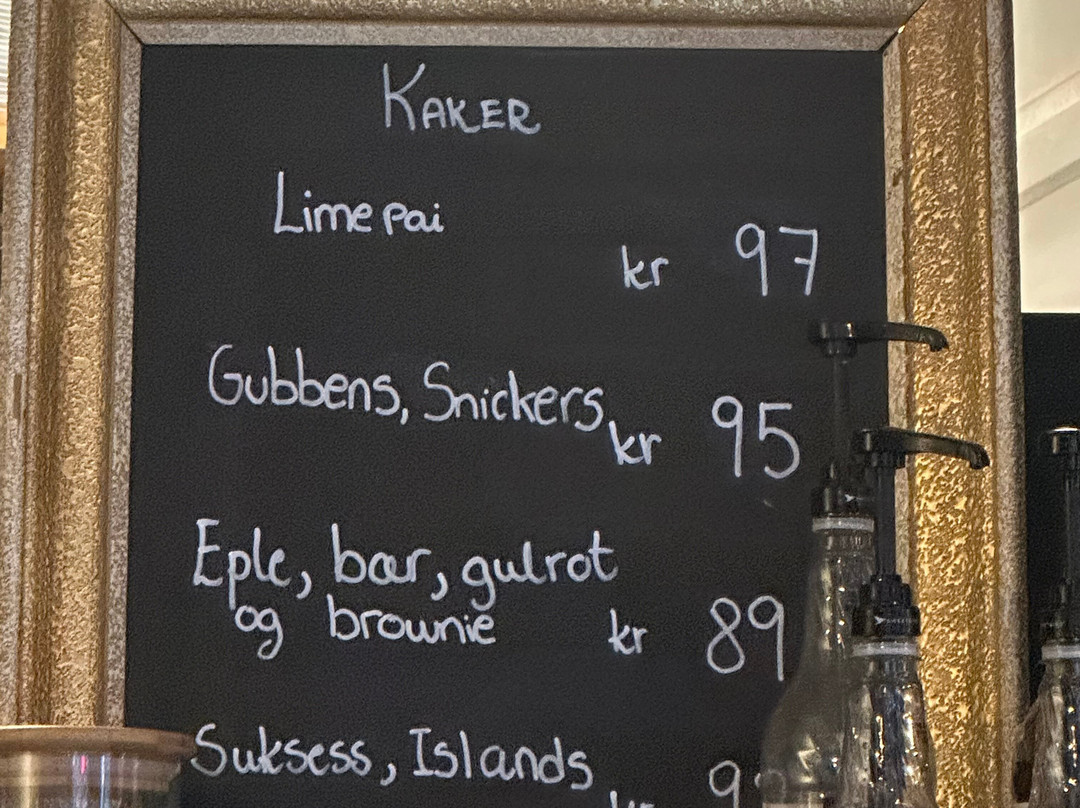 KAKER
Lime pai
kr 97
Gubbens, Snickers,
kr 95
Eple, bær, gulrot
og brownie kr 89
Suksess, Islands
kr